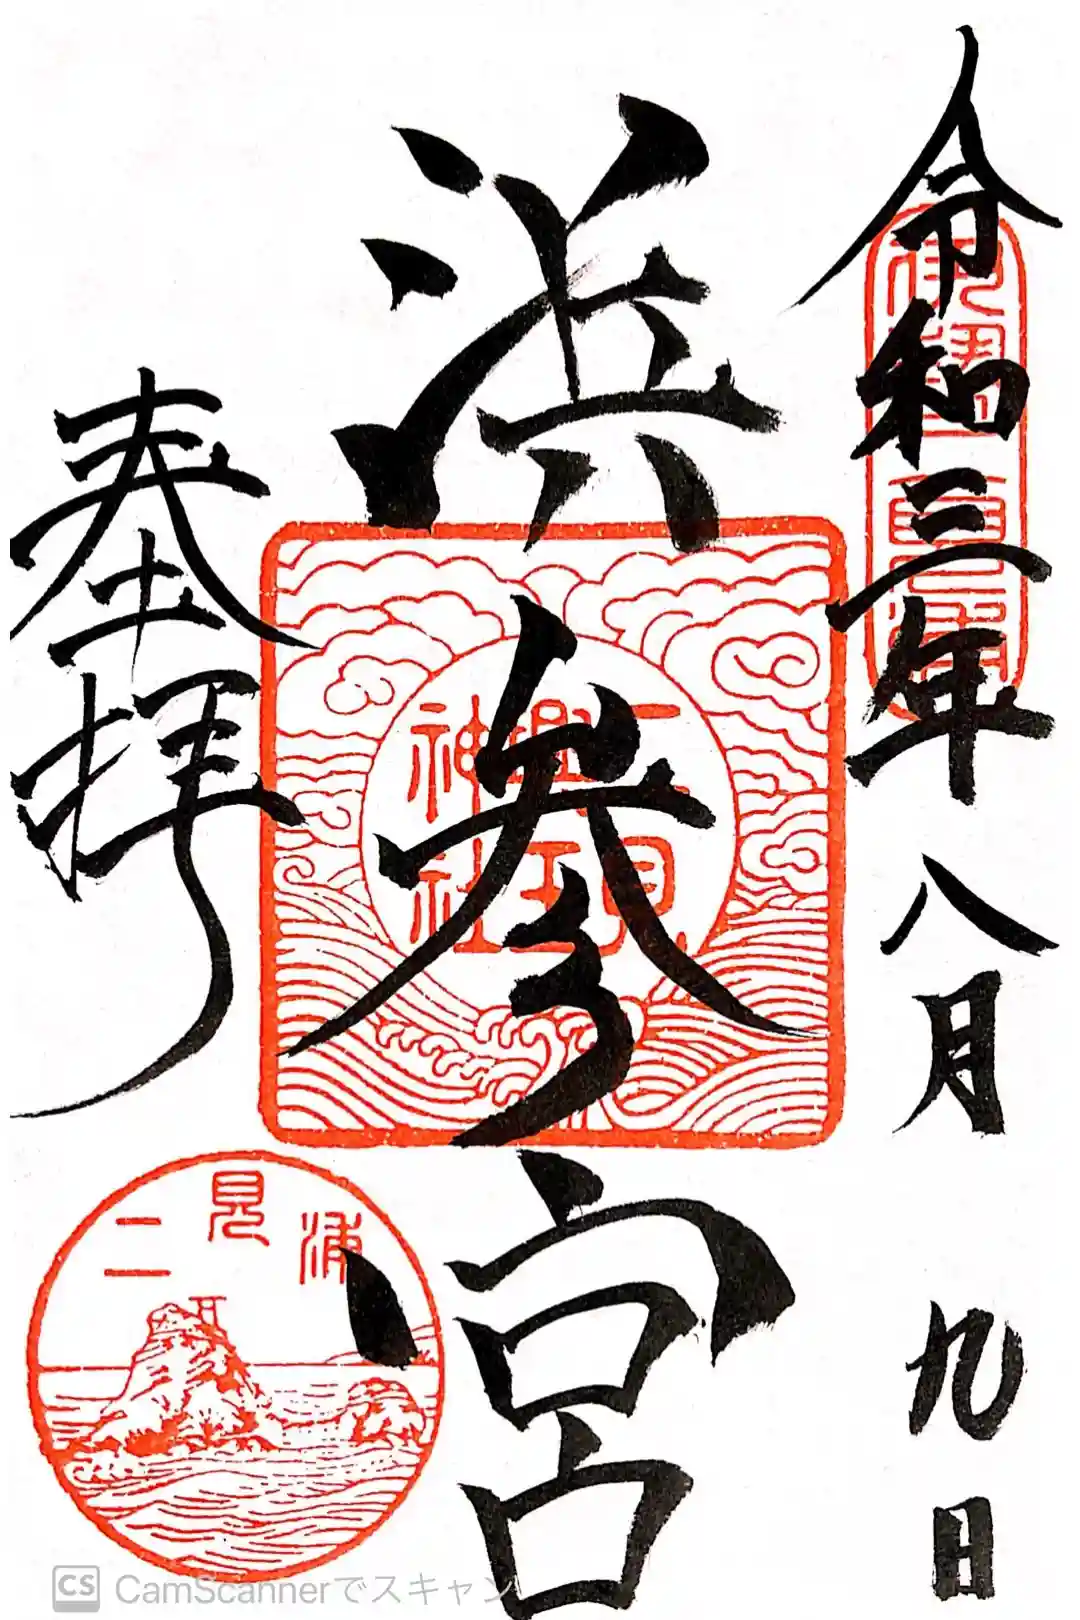 令和三年八月九日
浜参宮
奉拝
二見
興玉
神社
二見浦
CS CamScannerでスキャン